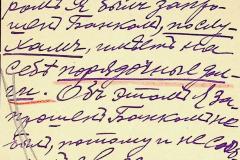 Я былъ запро-
шенъ Банкомъ, послу-
хамъ, имѣетъ на
себѣ порядочные дол-
ги. Объ этомъ я за-
прошенъ Банкомъ не
былъ, потому и не сооб-